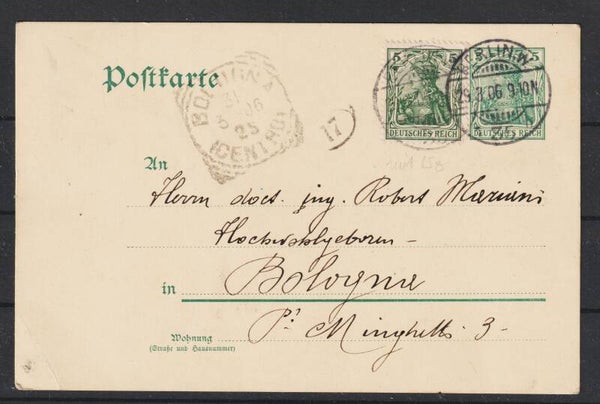 Postkarte
BOLOGNA
31
06
23
(CENTRO)
17
5 5
DEUTSCHES REICH
BERLIN.W.
06 9-10N
5
DEUTSCHES REICH
An
Herrn doct. ing. Robert Mariani
Hochwohlgeboren –
in Bologna
Wohnung
(Straße und Hausnummer)
Pz Minghetti 3 –